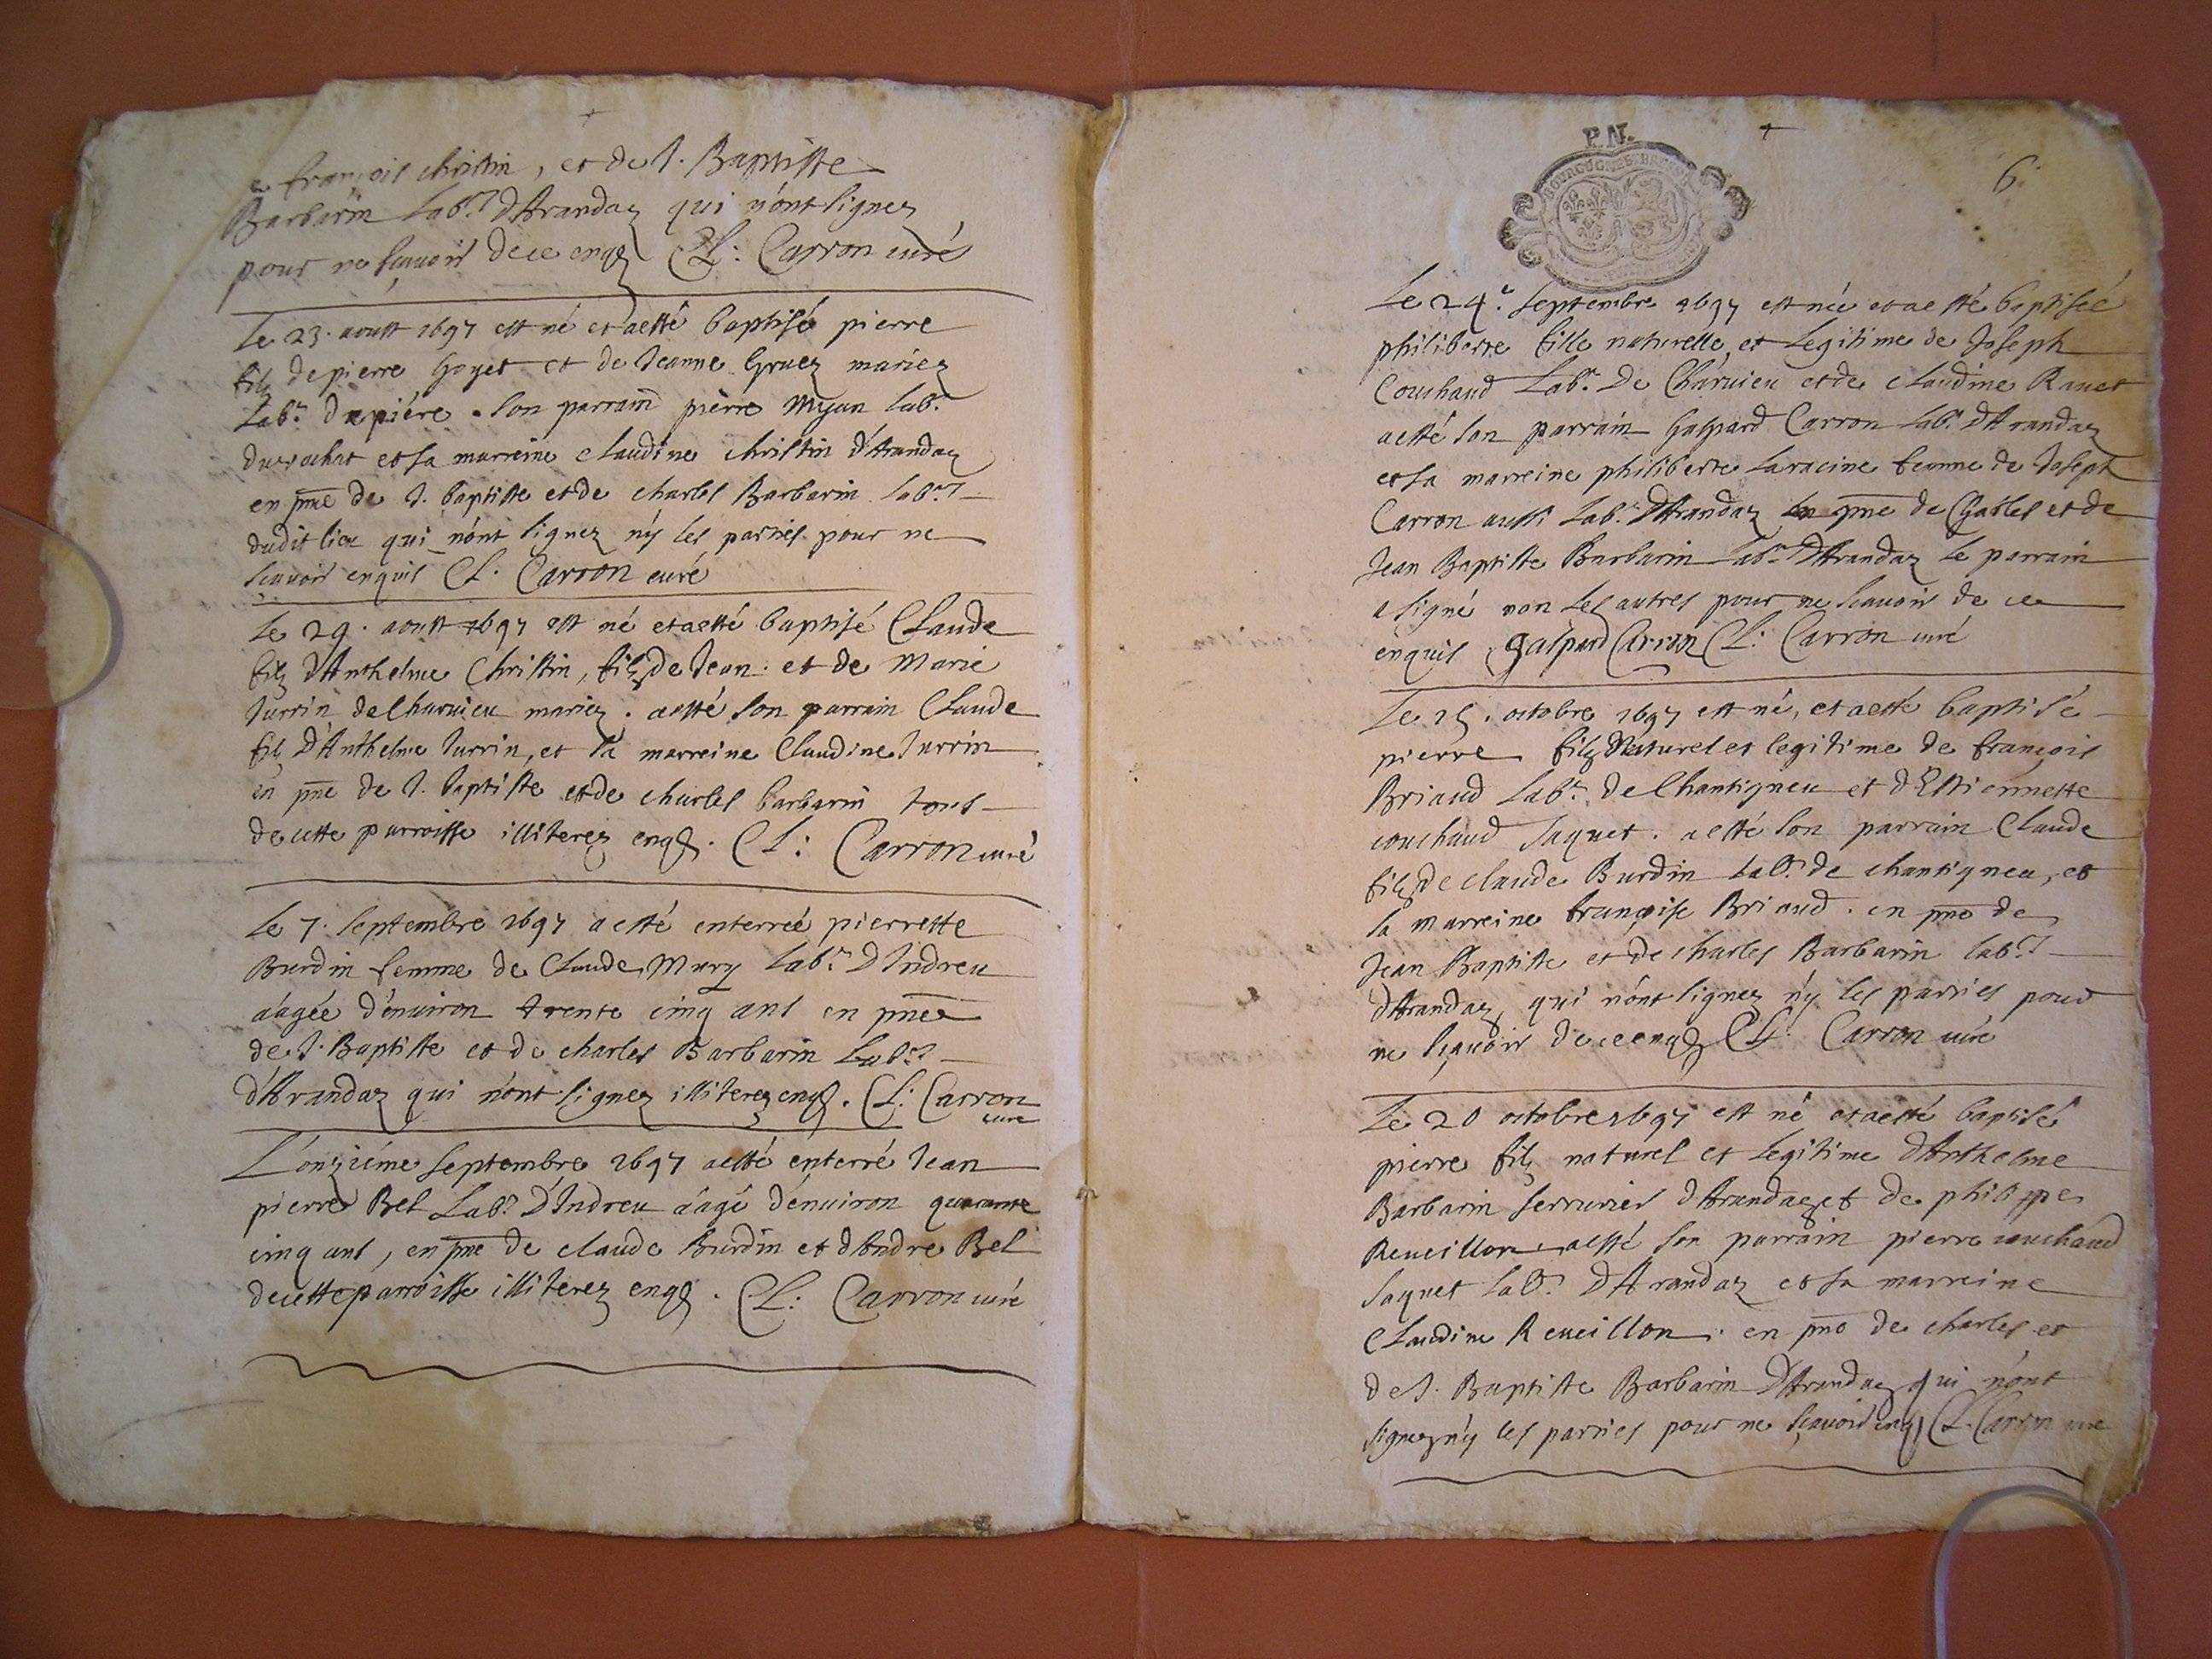 françois christin, et de J. Baptiste
Barbarin Lab.rs d'Arandaz qui n'ont signez
pour ne sçavoir de ce enqs Cl: Carron curé
Le 23. aoust 1697 est né et a esté baptisé pierre
filz de pierre Goyet et de Jeanne Gruez mariez
Lab.r son parrain pierre Myan lab.r
et sa marreine claudine christin d'Arandaz
en pnce de J. baptiste et de charles Barbarin lab.rs
dudit lieu qui n'ont signez n'y les parties pour ne
sçavoir enquis Cl. Carron curé
Le 29. aoust 1697 est né et a esté baptisé Claude
filz d'Anthelme Christin, filz de Jean et de Marie
Jurrin de Charvieu mariez. a esté son parrain Claude
filz d'Anthelme Jurrin, et sa marreine Claudine Jurrin
en pnce de J. baptiste et de charles barbarin tous
de cette parroisse illiterez enqs. Cl: Carron curé
Le 7. septembre 1697 a esté enterreé pierrette
Burdin femme de Claude Mury Lab.r D'Indreu
a'agée d'environ trente cinq ans en pnce
de J. Baptiste et de charles Barbarin Lab.rs
d'Arandaz qui n'ont signez illiterez enqs. Cl: Carron
curé
L'onziéme septembre 1697 a esté enterré Jean
pierre Bel Lab.r D'Indreu a'agé d'environ quarante
cinq ans, en pnce de claude Burdin et d'Andre Bel
de cette parroisse illiterez enqs. Cl: Carron curé
P.N.
6
Le 24.e septembre 1697 est née et a esté baptiseé
philiberte fille naturelle et legitime de Joseph
Couchaud Lab.r De Charvieu et de claudine Ravet
a esté son parrain Gaspard Carron lab.r d'Arandaz
et sa marreine philiberte Laracine femme de Joseph
Carron aussi Lab.r d'Arandaz en pnce de Charles et de
Jean Baptiste Barbarin Lab.rs d'Arandaz Le parrain
a signé non les autres pour ne sçavoir de ce
enquis Gaspard Carron Cl: Carron curé
Le 15. octobre 1697 est né, et a esté baptisé
pierre filz Naturel et legitime de françois
Briaud Lab.r de Chantigneu et d'Estiennette
couchaud Jaquet. a esté son parrain Claude
filz de claude Burdin Lab.r de chantigneu, et
sa marreine françoise Briaud. en pnce de
Jean Baptiste et de charles Barbarin lab.rs
d'Arandaz, qui n'ont signez n'y les parties pour
ne sçavoir de ce enqs Cl: Carron curé
Le 20 octobre 1697 est né et a esté baptisé
pierre filz naturel et legitime d'Anthelme
Barbarin serrurier d'Arandaz et de philippe
Reveillon a esté son parrain pierre couchaud
Jaquet lab.r d'Arandaz et sa marreine
Claudine Reveillon. en pnce de charles et
de J. Baptiste Barbarin d'Arandaz qui n'ont
signez n'y les parties pour ne sçavoir enqs Cl. Carron curé